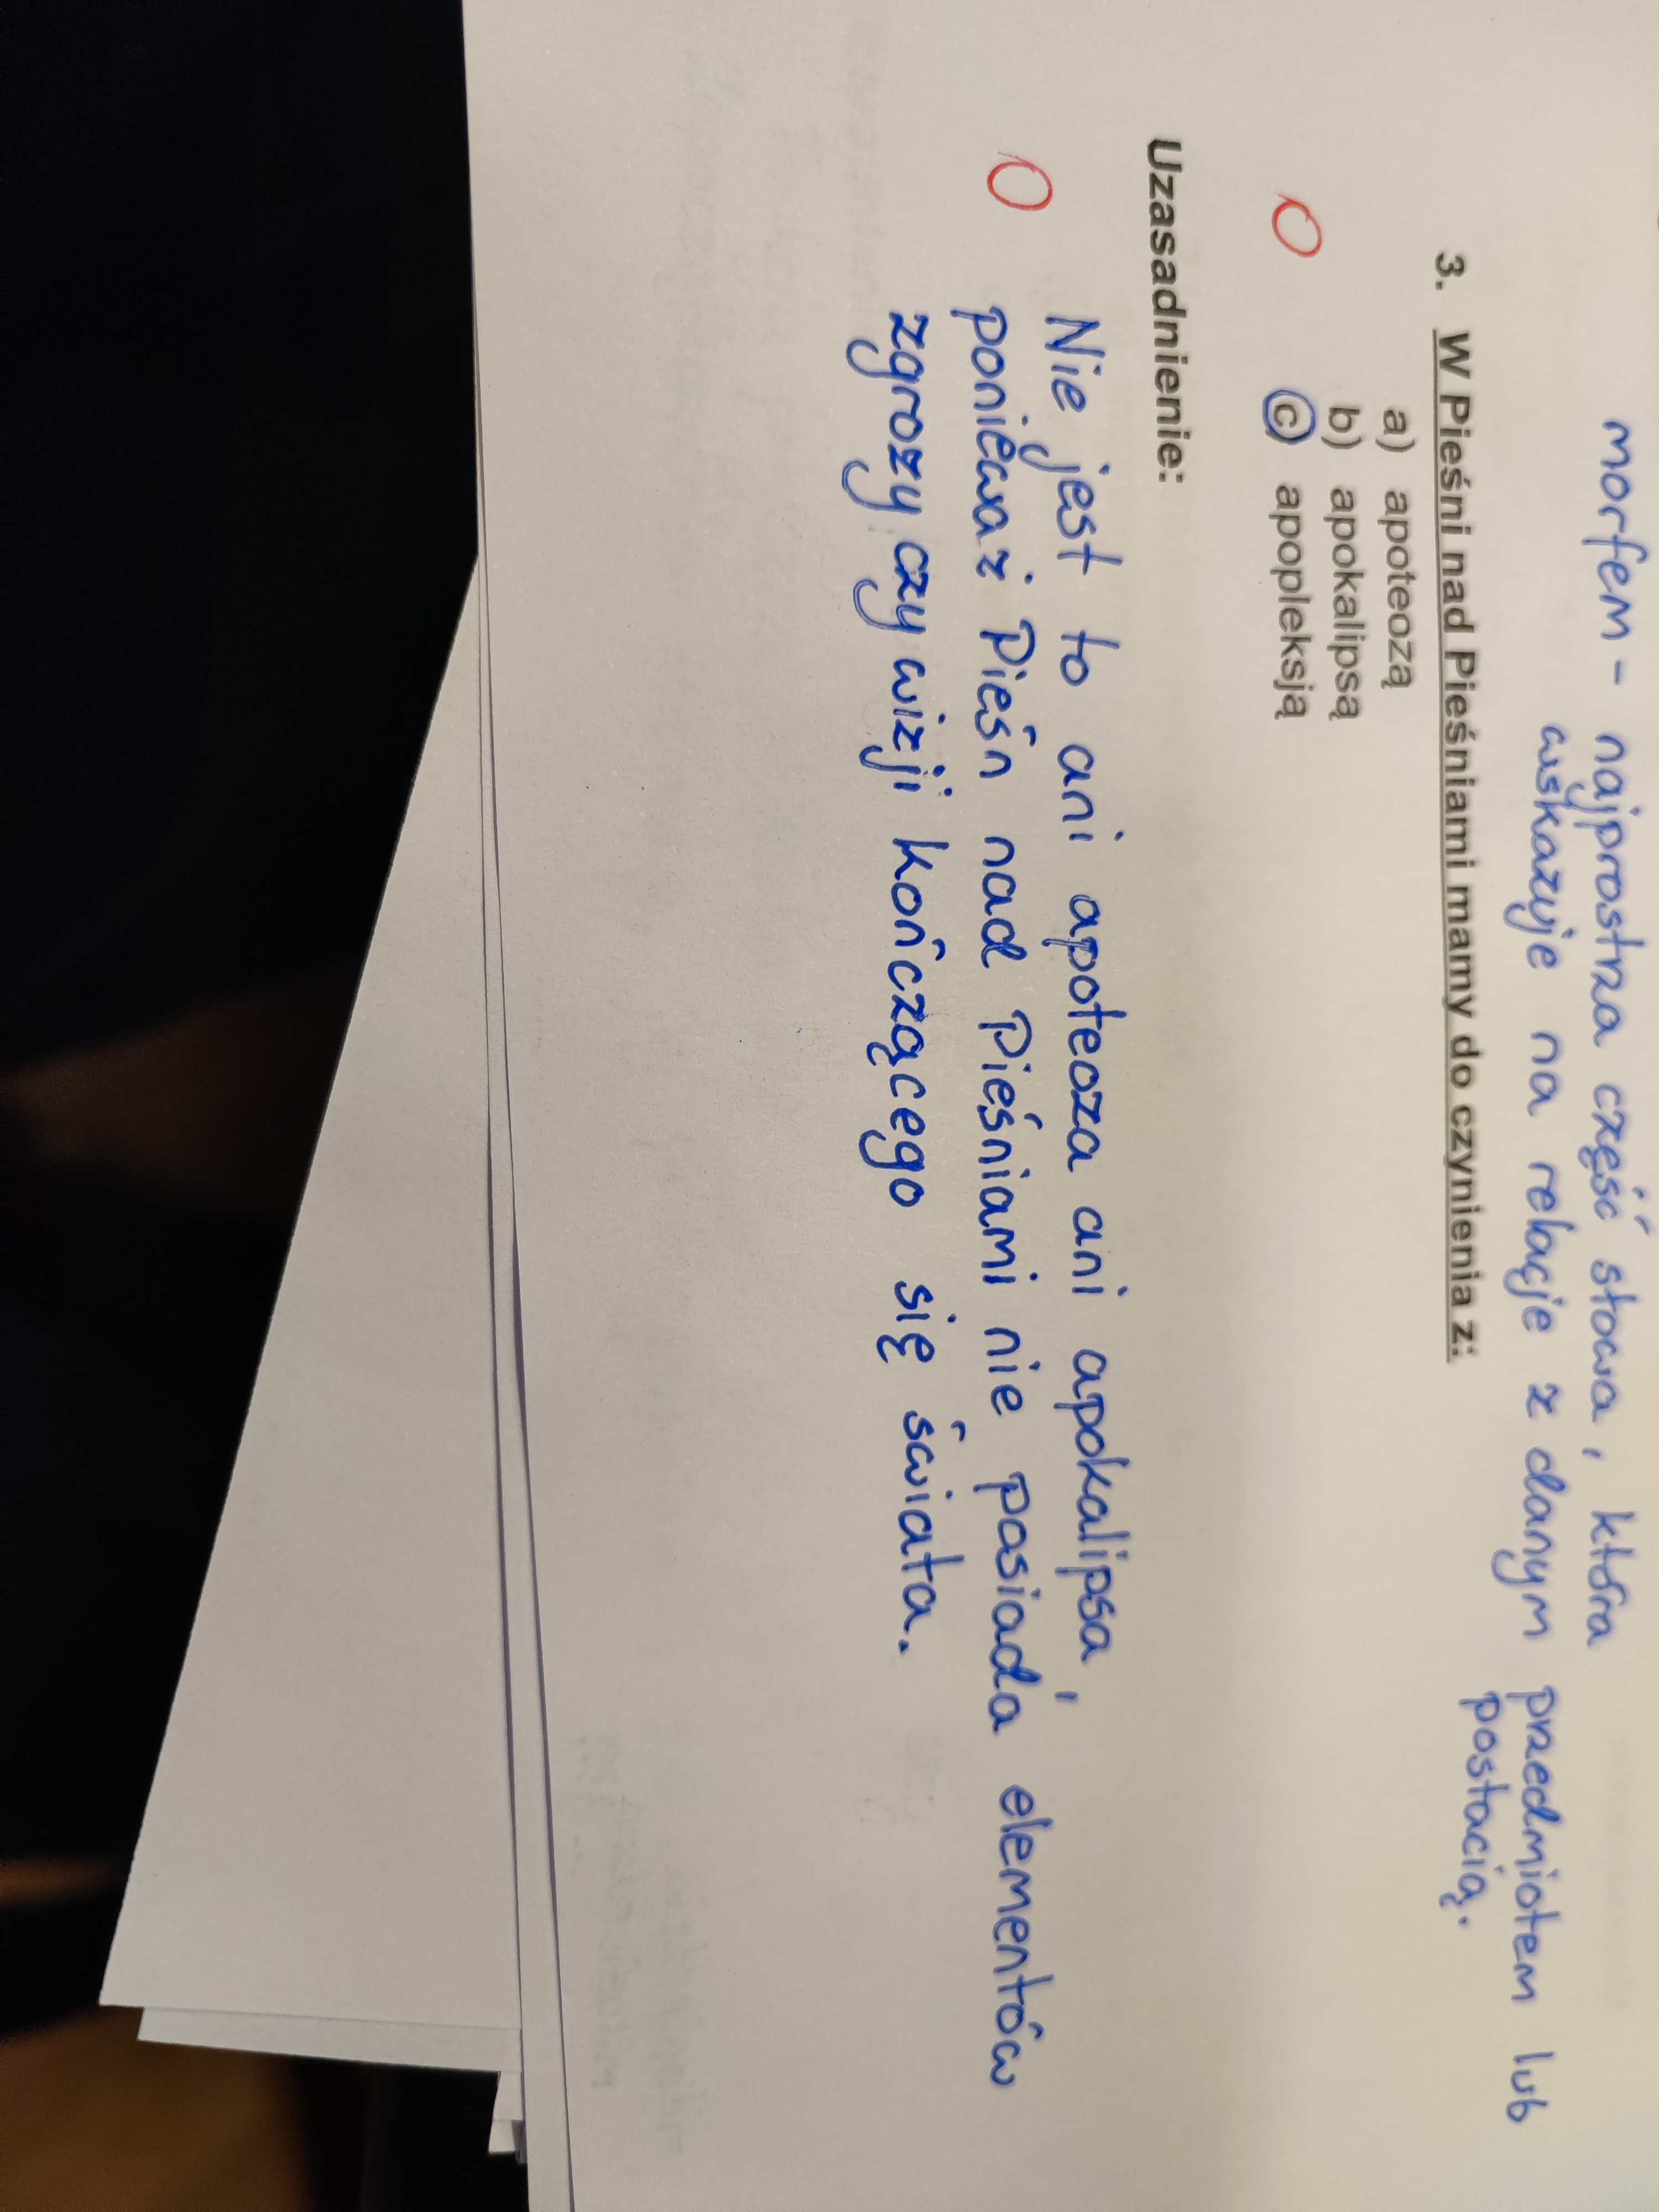 morfem - najprostrza część słowa, która
wskazuje na relacje z danym przedmiotem lub
postacią.
3. W Pieśni nad Pieśniami mamy do czynienia z:
a) apoteozą
b) apokalipsą
c) apopleksją
0
Uzasadnienie:
0
Nie jest to ani apoteoza ani apokalipsa,
ponieważ Pieśn nad Pieśniami nie posiada elementów
zgrozy czy wizji kończącego się świata.